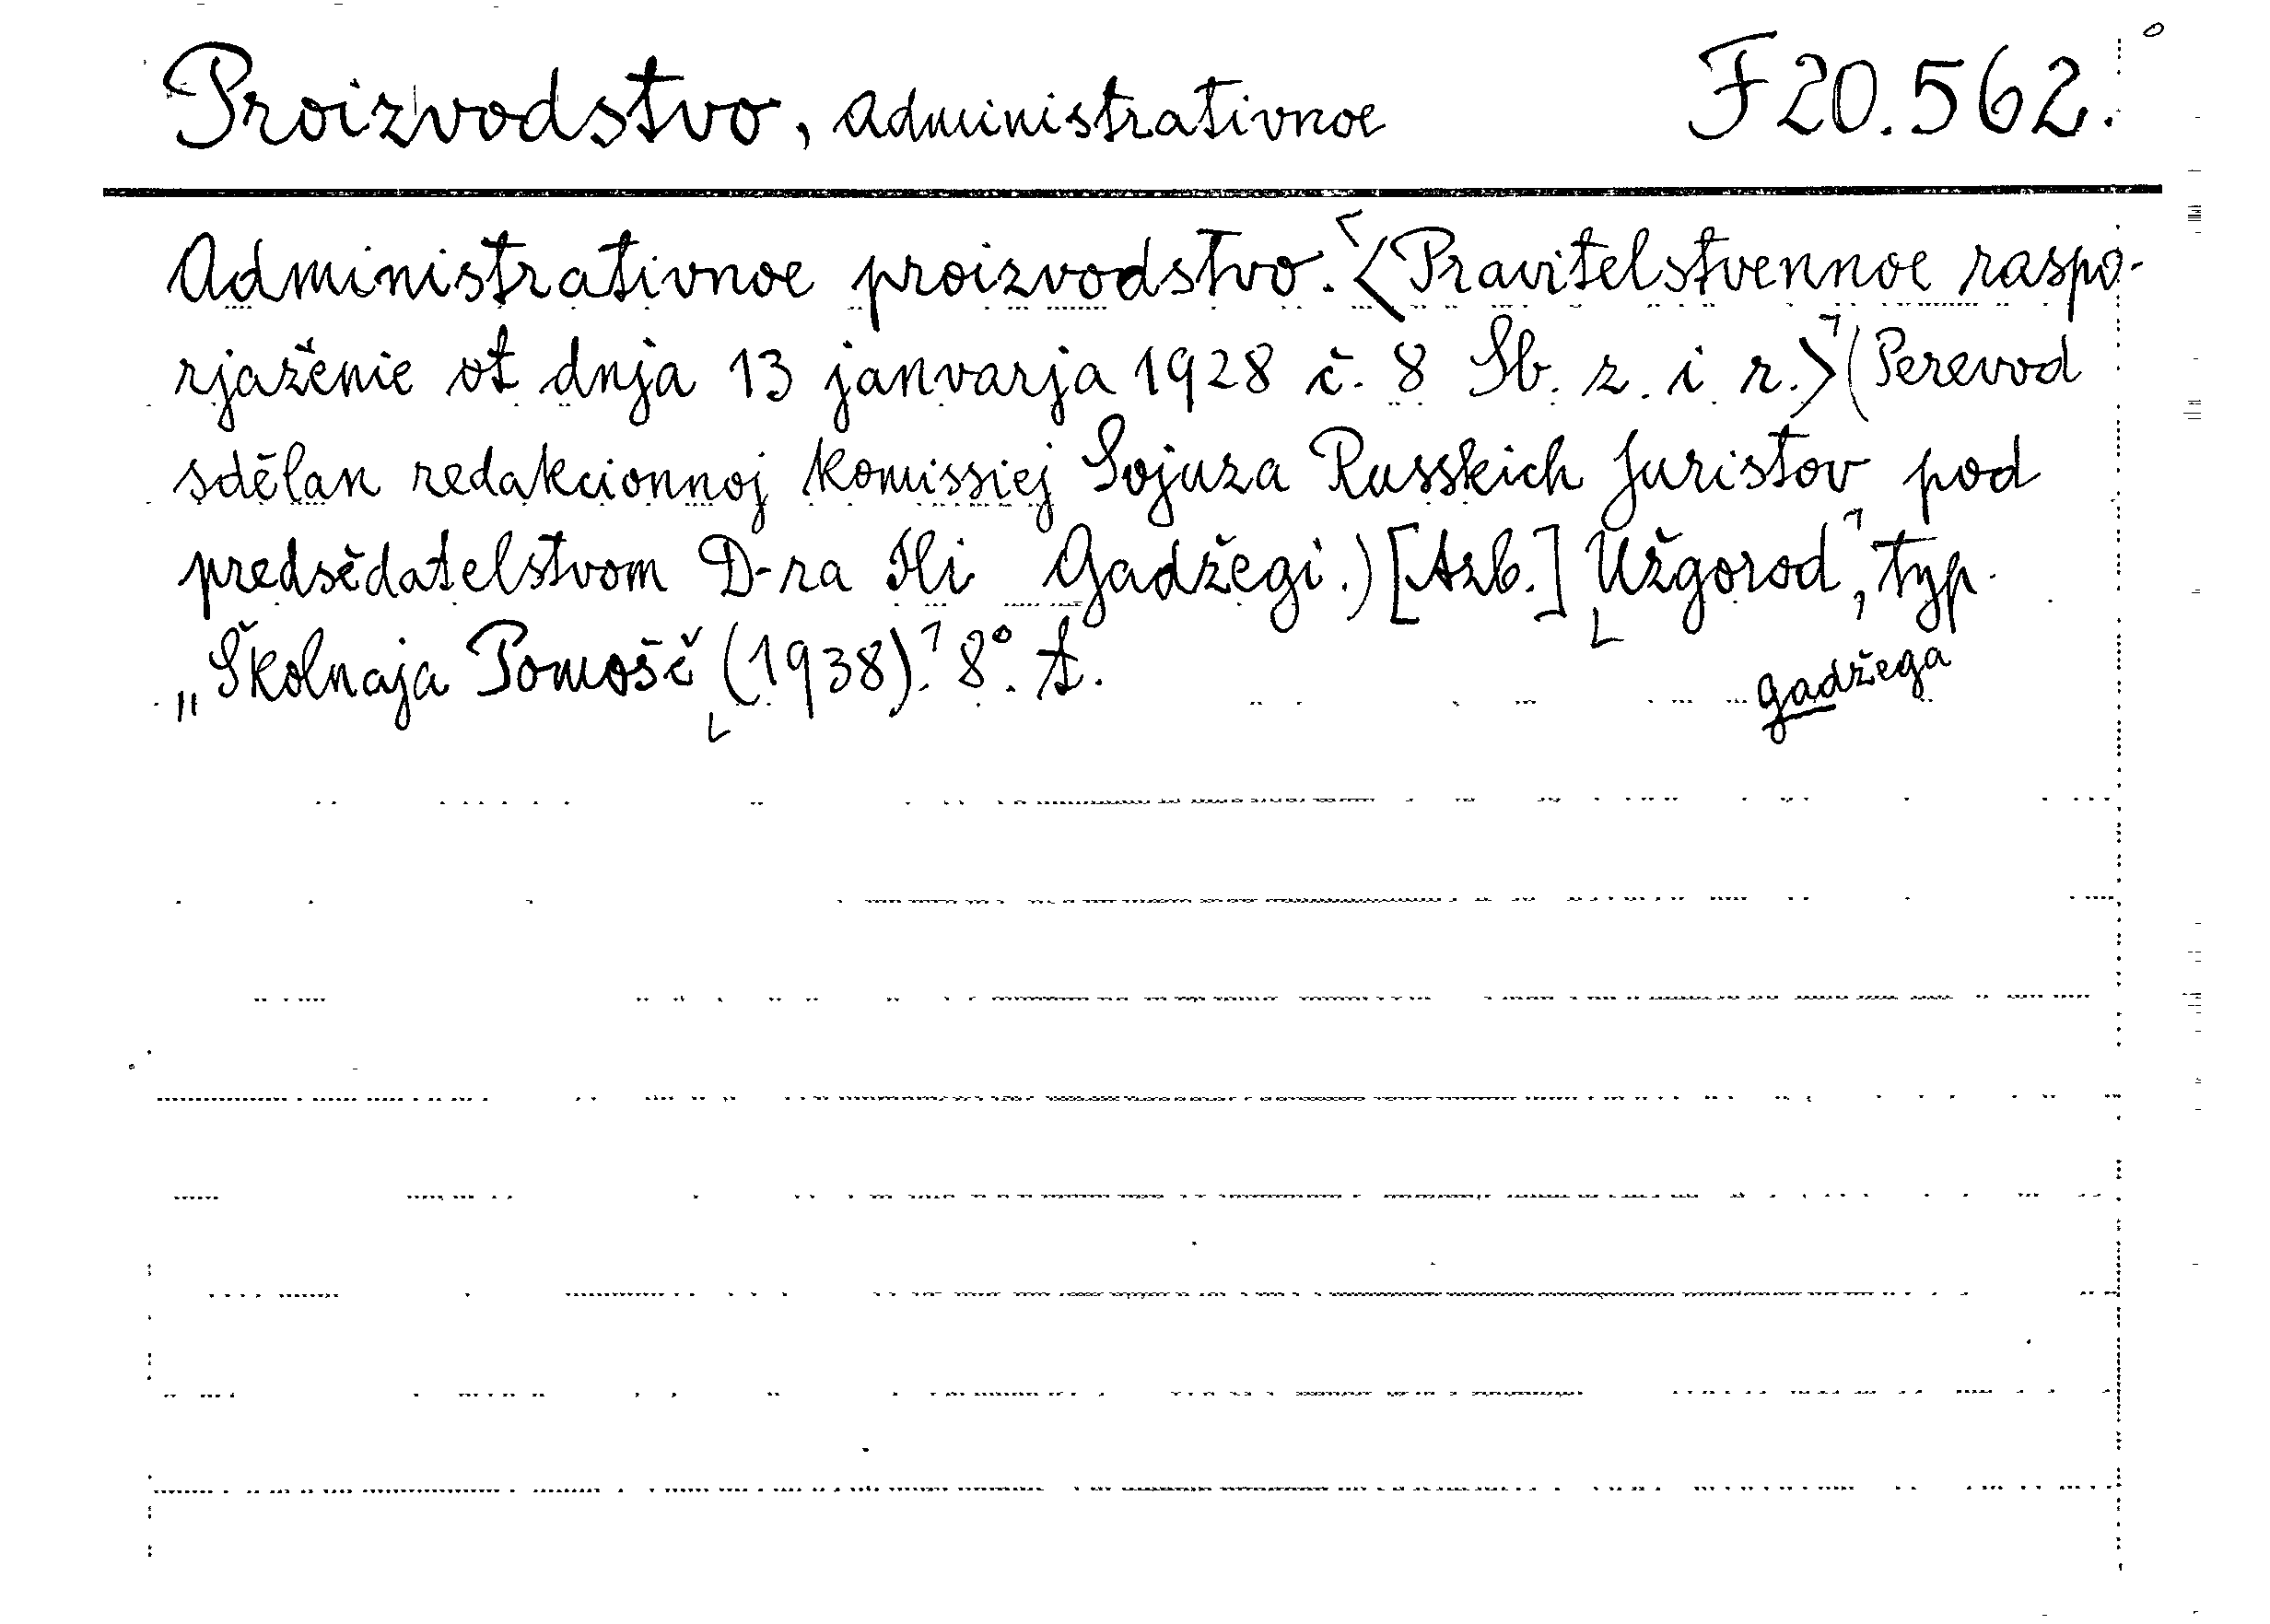 Proizvodstvo, Administrativnoe F 20.562.
Administrativnoe proizvodstvo. ⌜<Pravitelstvennoe raspo-
rjaženie ot dnja 13 janvarja 1928 č. 8 Sb. z. i r.>⌝ (Perevod
sdělan redakcionnoj komissiej Sojuza Russkich Juristov pod
predsědatelstvom D-ra Ili Gadžegi.) [Azb.] ⌞Užgorod⌝, typ.
„Školnaja Pomošč ⌞(1938).⌝ 8°. A.
Gadžega